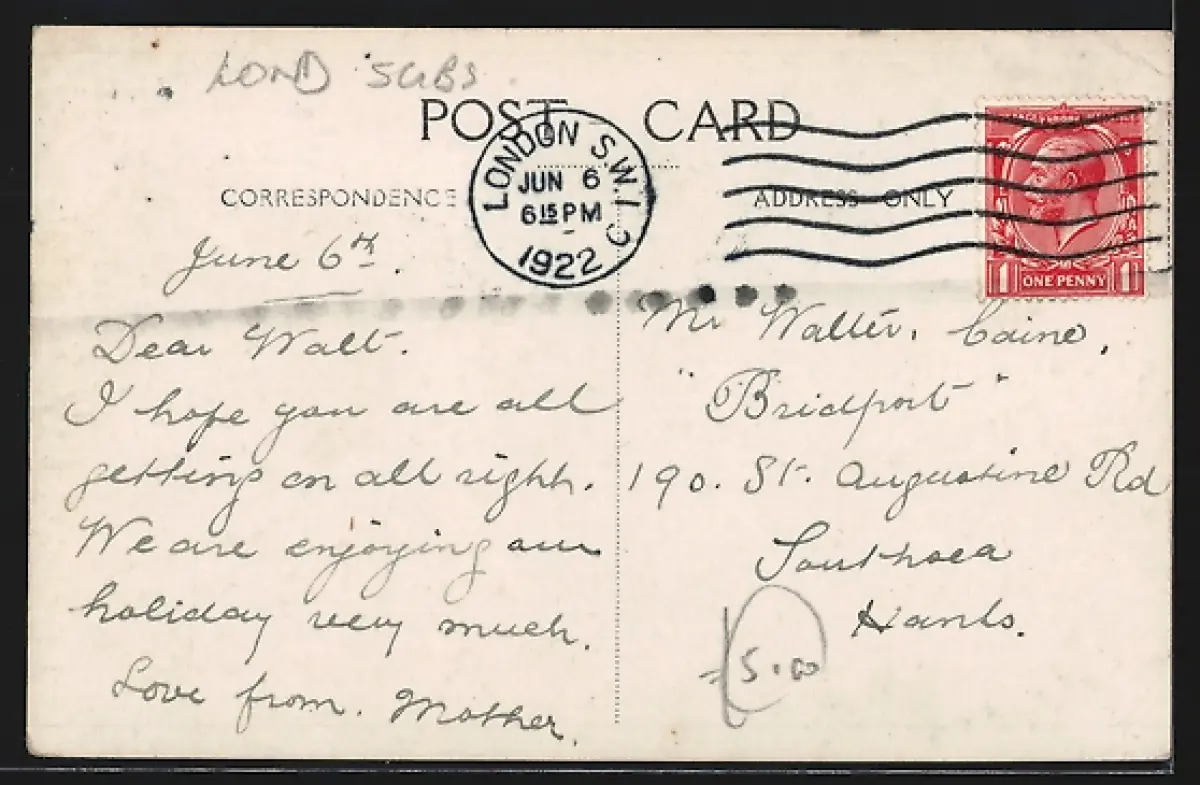 LOND SUBS
POST CARD
LONDON S.W.1
JUN 6
6 15 PM
1922
C
CORRESPONDENCE
ADDRESS ONLY
ONE PENNY
1 1
June 6th.
Dear Walt.
I hope you are all
getting on all right.
We are enjoying our
holiday very much.
Love from. Mother.
Mr Walter. Caine,
"Bridport"
190. St. Augustine Rd
Southsea
Hants.
5.00